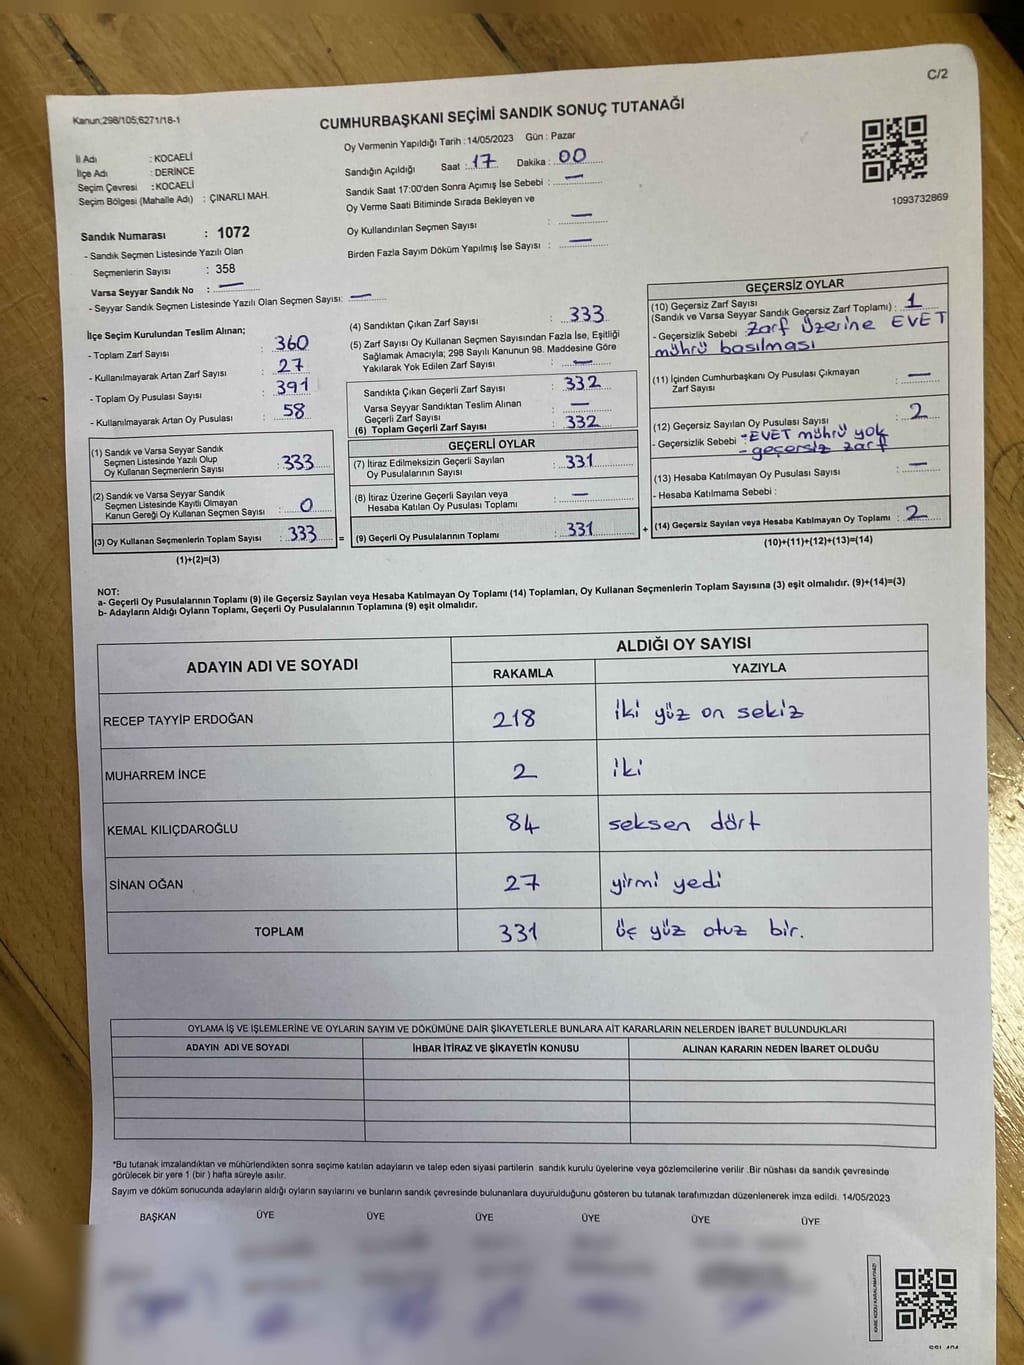 C/2
Kanun;298/105;6271/18-1
CUMHURBAŞKANI SEÇİMİ SANDIK SONUÇ TUTANAĞI
Oy Vermenin Yapıldığı Tarih : 14/05/2023 Gün : Pazar
İl Adı : KOCAELİ
İlçe Adı : DERİNCE
Seçim Çevresi : KOCAELİ
Seçim Bölgesi (Mahalle Adı) : ÇINARLI MAH.
Sandığın Açıldığı Saat : 17 Dakika : 00
Sandık Saat 17:00'den Sonra Açımış İse Sebebi : —
Oy Verme Saati Bitiminde Sırada Bekleyen ve
Oy Kullandırılan Seçmen Sayısı : —
Birden Fazla Sayım Döküm Yapılmış İse Sayısı : —
1093732869
Sandık Numarası : 1072
- Sandık Seçmen Listesinde Yazılı Olan
Seçmenlerin Sayısı : 358
Varsa Seyyar Sandık No : —
- Seyyar Sandık Seçmen Listesinde Yazılı Olan Seçmen Sayısı: —
İlçe Seçim Kurulundan Teslim Alınan;
- Toplam Zarf Sayısı : 360
- Kullanılmayarak Artan Zarf Sayısı : 27
- Toplam Oy Pusulası Sayısı : 391
- Kullanılmayarak Artan Oy Pusulası : 58
(1) Sandık ve Varsa Seyyar Sandık
Seçmen Listesinde Yazılı Olup
Oy Kullanan Seçmenlerin Sayısı : 333
(2) Sandık ve Varsa Seyyar Sandık
Seçmen Listesinde Kayıtlı Olmayan
Kanun Gereği Oy Kullanan Seçmen Sayısı : 0
(3) Oy Kullanan Seçmenlerin Toplam Sayısı : 333 =
(1)+(2)=(3)
(4) Sandıktan Çıkan Zarf Sayısı : 333
(5) Zarf Sayısı Oy Kullanan Seçmen Sayısından Fazla İse, Eşitliği
Sağlamak Amacıyla; 298 Sayılı Kanunun 98. Maddesine Göre
Yakılarak Yok Edilen Zarf Sayısı : —
Sandıkta Çıkan Geçerli Zarf Sayısı : 332
Varsa Seyyar Sandıktan Teslim Alınan
Geçerli Zarf Sayısı : —
(6) Toplam Geçerli Zarf Sayısı : 332
GEÇERLİ OYLAR
(7) İtiraz Edilmeksizin Geçerli Sayılan
Oy Pusulalarının Sayısı : 331
(8) İtiraz Üzerine Geçerli Sayılan veya
Hesaba Katılan Oy Pusulası Toplamı : —
(9) Geçerli Oy Pusulalarının Toplamı : 331 +
GEÇERSİZ OYLAR
(10) Geçersiz Zarf Sayısı
(Sandık ve Varsa Seyyar Sandık Geçersiz Zarf Toplamı) : 1
- Geçersizlik Sebebi : Zarf Üzerine EVET
mührü basılması
(11) İçinden Cumhurbaşkanı Oy Pusulası Çıkmayan
Zarf Sayısı : —
(12) Geçersiz Sayılan Oy Pusulası Sayısı : 2
- Geçersizlik Sebebi - EVET mührü yok
- geçersiz zarf
(13) Hesaba Katılmayan Oy Pusulası Sayısı : —
- Hesaba Katılmama Sebebi :
(14) Geçersiz Sayılan veya Hesaba Katılmayan Oy Toplamı : 2
(10)+(11)+(12)+(13)=(14)
NOT:
a- Geçerli Oy Pusulalarının Toplamı (9) ile Geçersiz Sayılan veya Hesaba Katılmayan Oy Toplamı (14) Toplamları, Oy Kullanan Seçmenlerin Toplam Sayısına (3) eşit olmalıdır. (9)+(14)=(3)
b- Adayların Aldığı Oyların Toplamı, Geçerli Oy Pusulalarının Toplamına (9) eşit olmalıdır.
ADAYIN ADI VE SOYADI
ALDIĞI OY SAYISI
RAKAMLA YAZIYLA
RECEP TAYYİP ERDOĞAN 218 iki yüz on sekiz
MUHARREM İNCE 2 iki
KEMAL KILIÇDAROĞLU 84 seksen dört
SİNAN OĞAN 27 yirmi yedi
TOPLAM 331 üç yüz otuz bir.
OYLAMA İŞ VE İŞLEMLERİNE VE OYLARIN SAYIM VE DÖKÜMÜNE DAİR ŞİKAYETLERLE BUNLARA AİT KARARLARIN NELERDEN İBARET BULUNDUKLARI
ADAYIN ADI VE SOYADI İHBAR İTİRAZ VE ŞİKAYETİN KONUSU ALINAN KARARIN NEDEN İBARET OLDUĞU
*Bu tutanak imzalandıktan ve mühürlendikten sonra seçime katılan adayların ve talep eden siyasi partilerin sandık kurulu üyelerine veya gözlemcilerine verilir .Bir nüshası da sandık çevresinde
görülecek bir yere 1 (bir ) hafta süreyle asılır.
Sayım ve döküm sonucunda adayların aldığı oyların sayılarını ve bunların sandık çevresinde bulunanlara duyurulduğunu gösteren bu tutanak tarafımızdan düzenlenerek imza edildi. 14/05/2023
BAŞKAN ÜYE ÜYE ÜYE ÜYE ÜYE ÜYE
KARE KODU KARALAMAYINIZ!